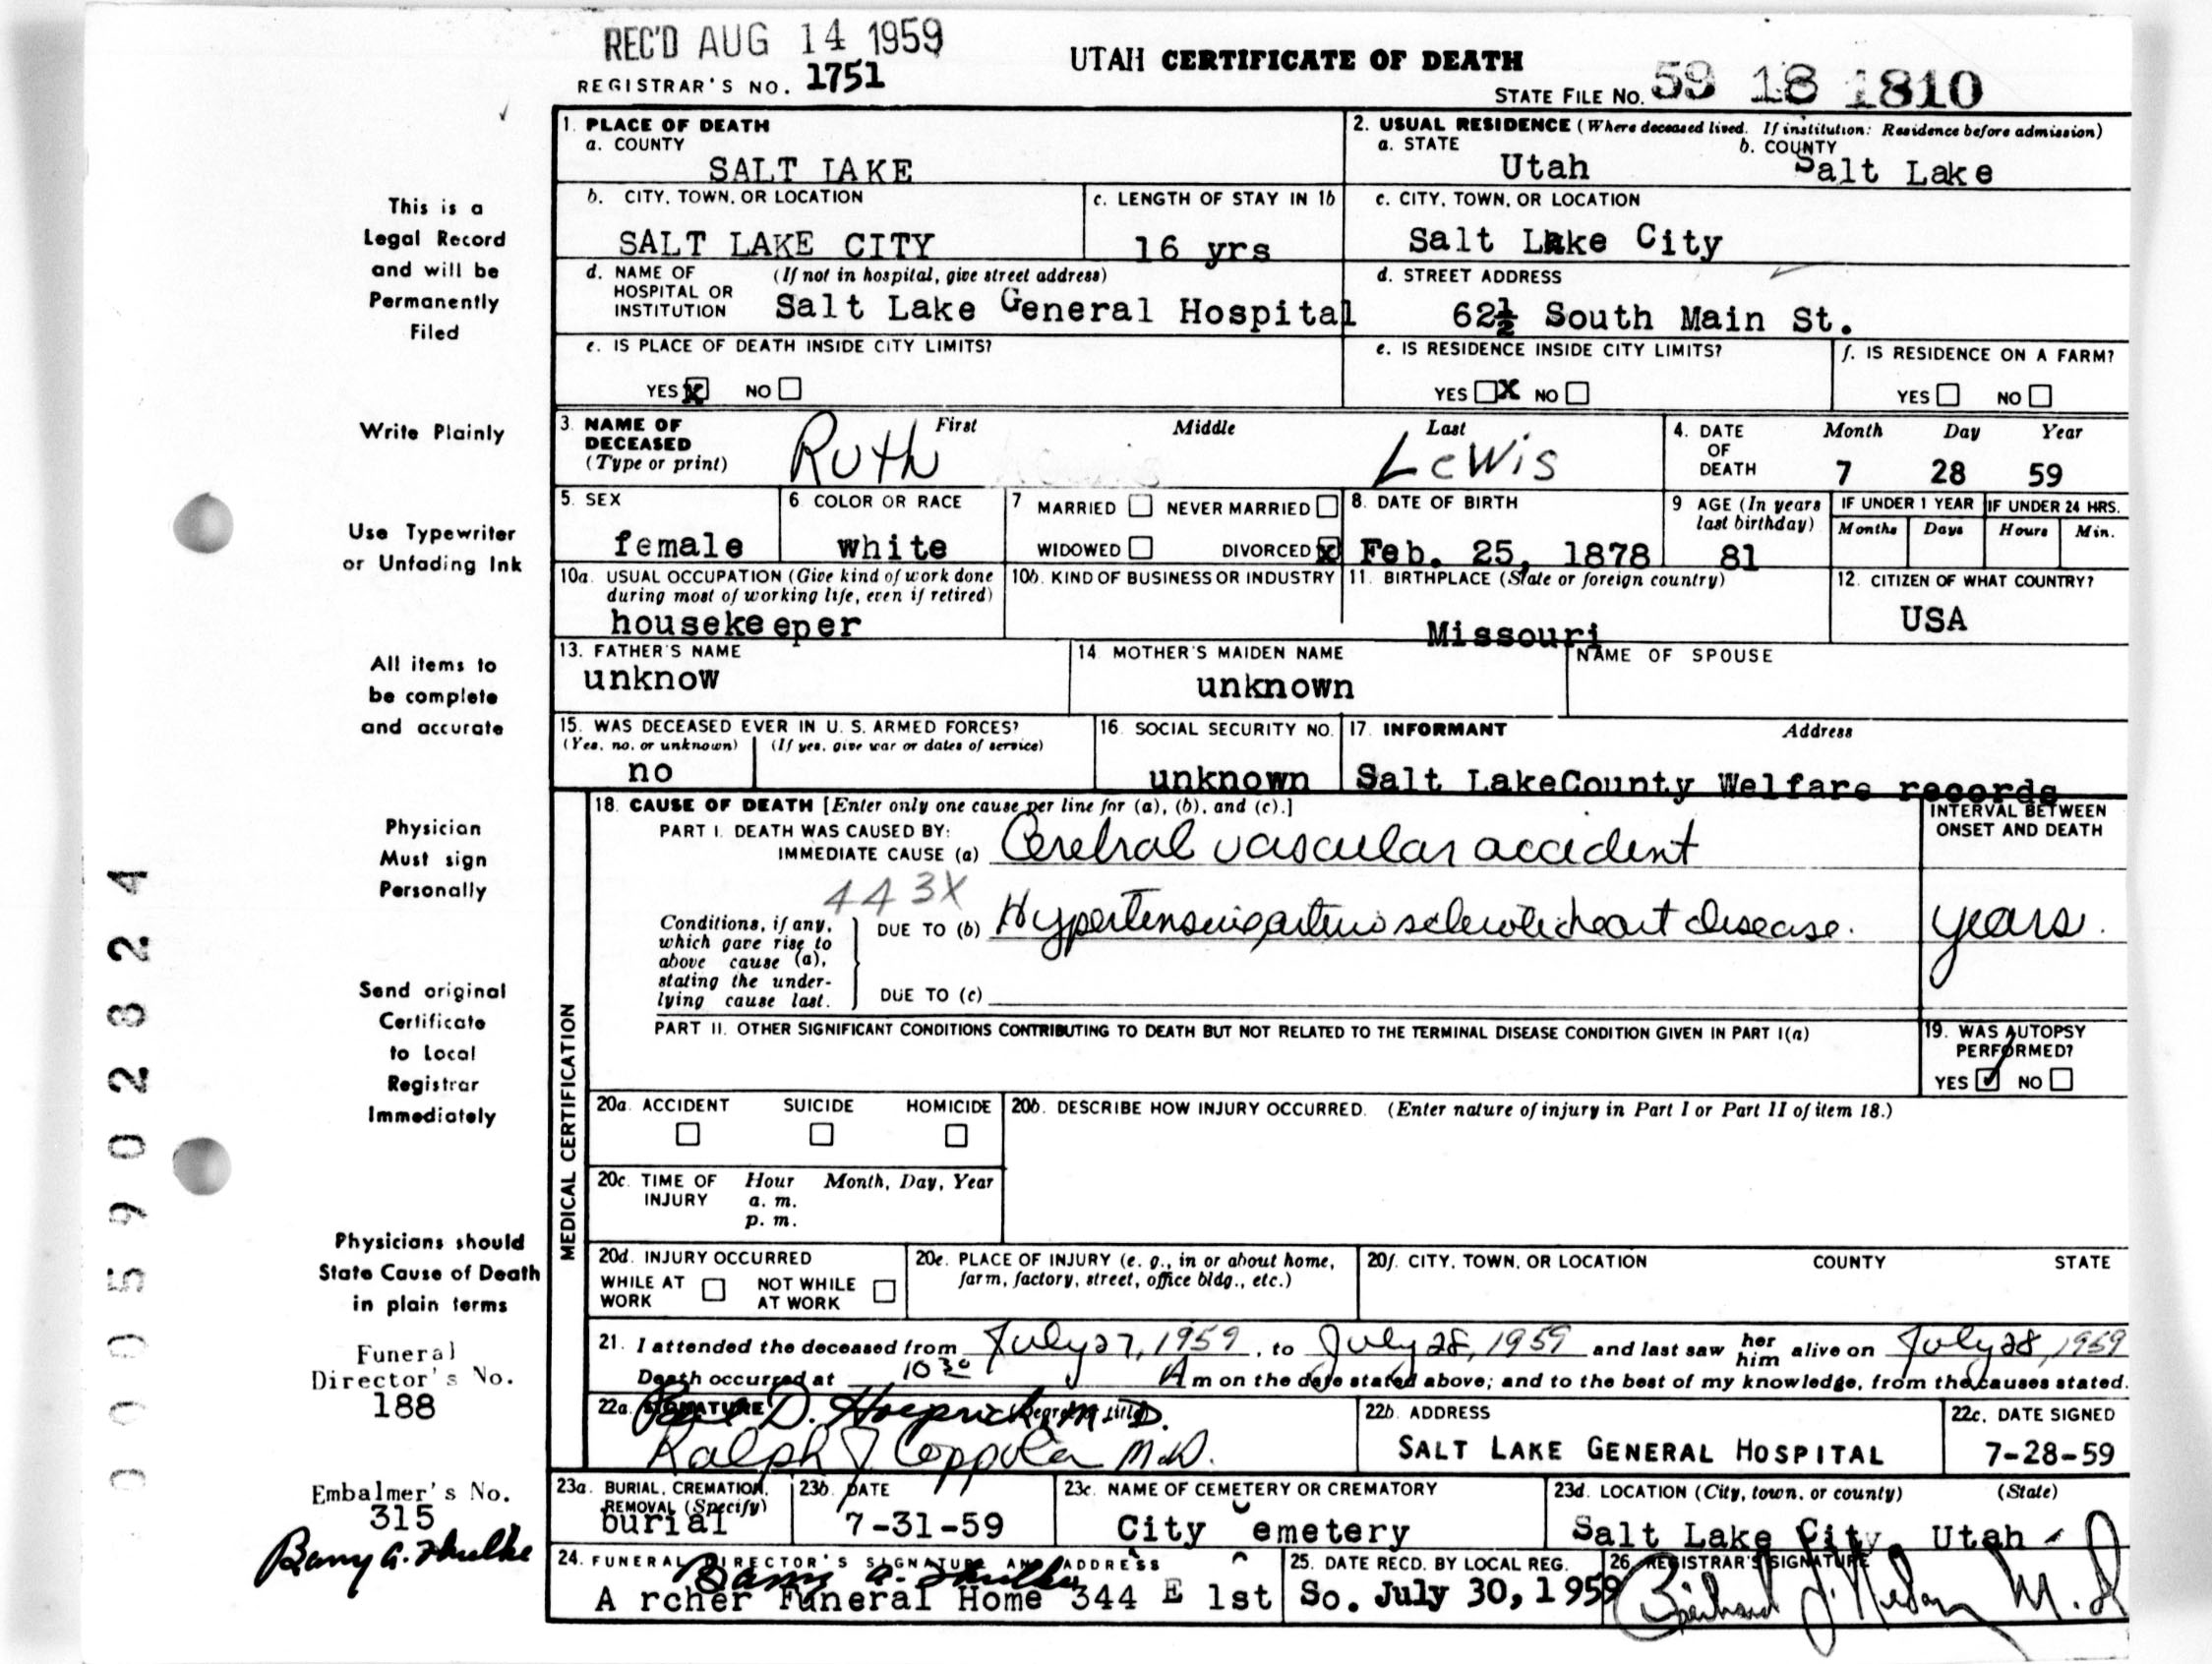 REC'D AUG 14 1959
REGISTRAR'S NO. 1751
UTAH CERTIFICATE OF DEATH
STATE FILE NO. 59 18 1810
1. PLACE OF DEATH
a. COUNTY
SALT LAKE
2. USUAL RESIDENCE (Where deceased lived. If institution: Residence before admission)
a. STATE b. COUNTY
Utah Salt Lake
b. CITY, TOWN, OR LOCATION
SALT LAKE CITY
c. LENGTH OF STAY IN 1b
16 yrs
c. CITY, TOWN, OR LOCATION
Salt Lake City
d. NAME OF HOSPITAL OR INSTITUTION (If not in hospital, give street address)
Salt Lake General Hospital
d. STREET ADDRESS
62½ South Main St.
e. IS PLACE OF DEATH INSIDE CITY LIMITS?
YES X NO
e. IS RESIDENCE INSIDE CITY LIMITS?
YES X NO
f. IS RESIDENCE ON A FARM?
YES NO
3. NAME OF DECEASED (Type or print)
First Middle Last
Ruth Lewis
4. DATE OF DEATH
Month Day Year
7 28 59
5. SEX
female
6 COLOR OR RACE
white
7 MARRIED NEVER MARRIED
WIDOWED DIVORCED X
8. DATE OF BIRTH
Feb. 25, 1878
9 AGE (In years last birthday)
81
IF UNDER 1 YEAR IF UNDER 24 HRS.
Months Days Hours Min.
10a. USUAL OCCUPATION (Give kind of work done during most of working life, even if retired)
housekeeper
10b. KIND OF BUSINESS OR INDUSTRY
11. BIRTHPLACE (State or foreign country)
Missouri
12. CITIZEN OF WHAT COUNTRY?
USA
13. FATHER'S NAME
unknow
14. MOTHER'S MAIDEN NAME
unknown
NAME OF SPOUSE
15. WAS DECEASED EVER IN U. S. ARMED FORCES?
(Yes, no, or unknown) (If yes, give war or dates of service)
no
16. SOCIAL SECURITY NO.
unknown
17. INFORMANT Address
Salt LakeCounty Welfare records
MEDICAL CERTIFICATION
18. CAUSE OF DEATH [Enter only one cause per line for (a), (b), and (c).]
PART I. DEATH WAS CAUSED BY:
IMMEDIATE CAUSE (a) Cerebral vascular accident
INTERVAL BETWEEN ONSET AND DEATH
443X
Conditions, if any, which gave rise to above cause (a), stating the underlying cause last.
DUE TO (b) Hypertensive arteriosclerotic heart disease. years.
DUE TO (c)
PART II. OTHER SIGNIFICANT CONDITIONS CONTRIBUTING TO DEATH BUT NOT RELATED TO THE TERMINAL DISEASE CONDITION GIVEN IN PART I(a)
19. WAS AUTOPSY PERFORMED?
YES ✓ NO
20a. ACCIDENT SUICIDE HOMICIDE
20b. DESCRIBE HOW INJURY OCCURRED. (Enter nature of injury in Part I or Part II of item 18.)
20c. TIME OF INJURY Hour Month, Day, Year
a. m.
p. m.
20d. INJURY OCCURRED
WHILE AT WORK NOT WHILE AT WORK
20e. PLACE OF INJURY (e. g., in or about home, farm, factory, street, office bldg., etc.)
20f. CITY, TOWN, OR LOCATION COUNTY STATE
21. I attended the deceased from July 27, 1959, to July 28, 1959 and last saw her him alive on July 28, 1959
Death occurred at 10 30 A m on the date stated above; and to the best of my knowledge, from the causes stated.
22a. SIGNATURE (Degree or title)
Paul D. Hoeprich, M.D.
Ralph J Coppola M.D.
22b. ADDRESS
SALT LAKE GENERAL HOSPITAL
22c. DATE SIGNED
7-28-59
23a. BURIAL, CREMATION, REMOVAL (Specify)
burial
23b. DATE
7-31-59
23c. NAME OF CEMETERY OR CREMATORY
City Cemetery
23d. LOCATION (City, town, or county) (State)
Salt Lake City, Utah
24. FUNERAL DIRECTOR'S SIGNATURE AND ADDRESS
A rcher Funeral Home 344 E 1st So.
25. DATE RECD. BY LOCAL REG.
July 30, 1959
26. REGISTRAR'S SIGNATURE
M.D
This is a
Legal Record
and will be
Permanently
Filed
Write Plainly
Use Typewriter
or Unfading Ink
All items to
be complete
and accurate
Physician
Must sign
Personally
Send original
Certificate
to Local
Registrar
Immediately
Physicians should
State Cause of Death
in plain terms
Funeral
Director's No.
188
Embalmer's No.
315
0005902824